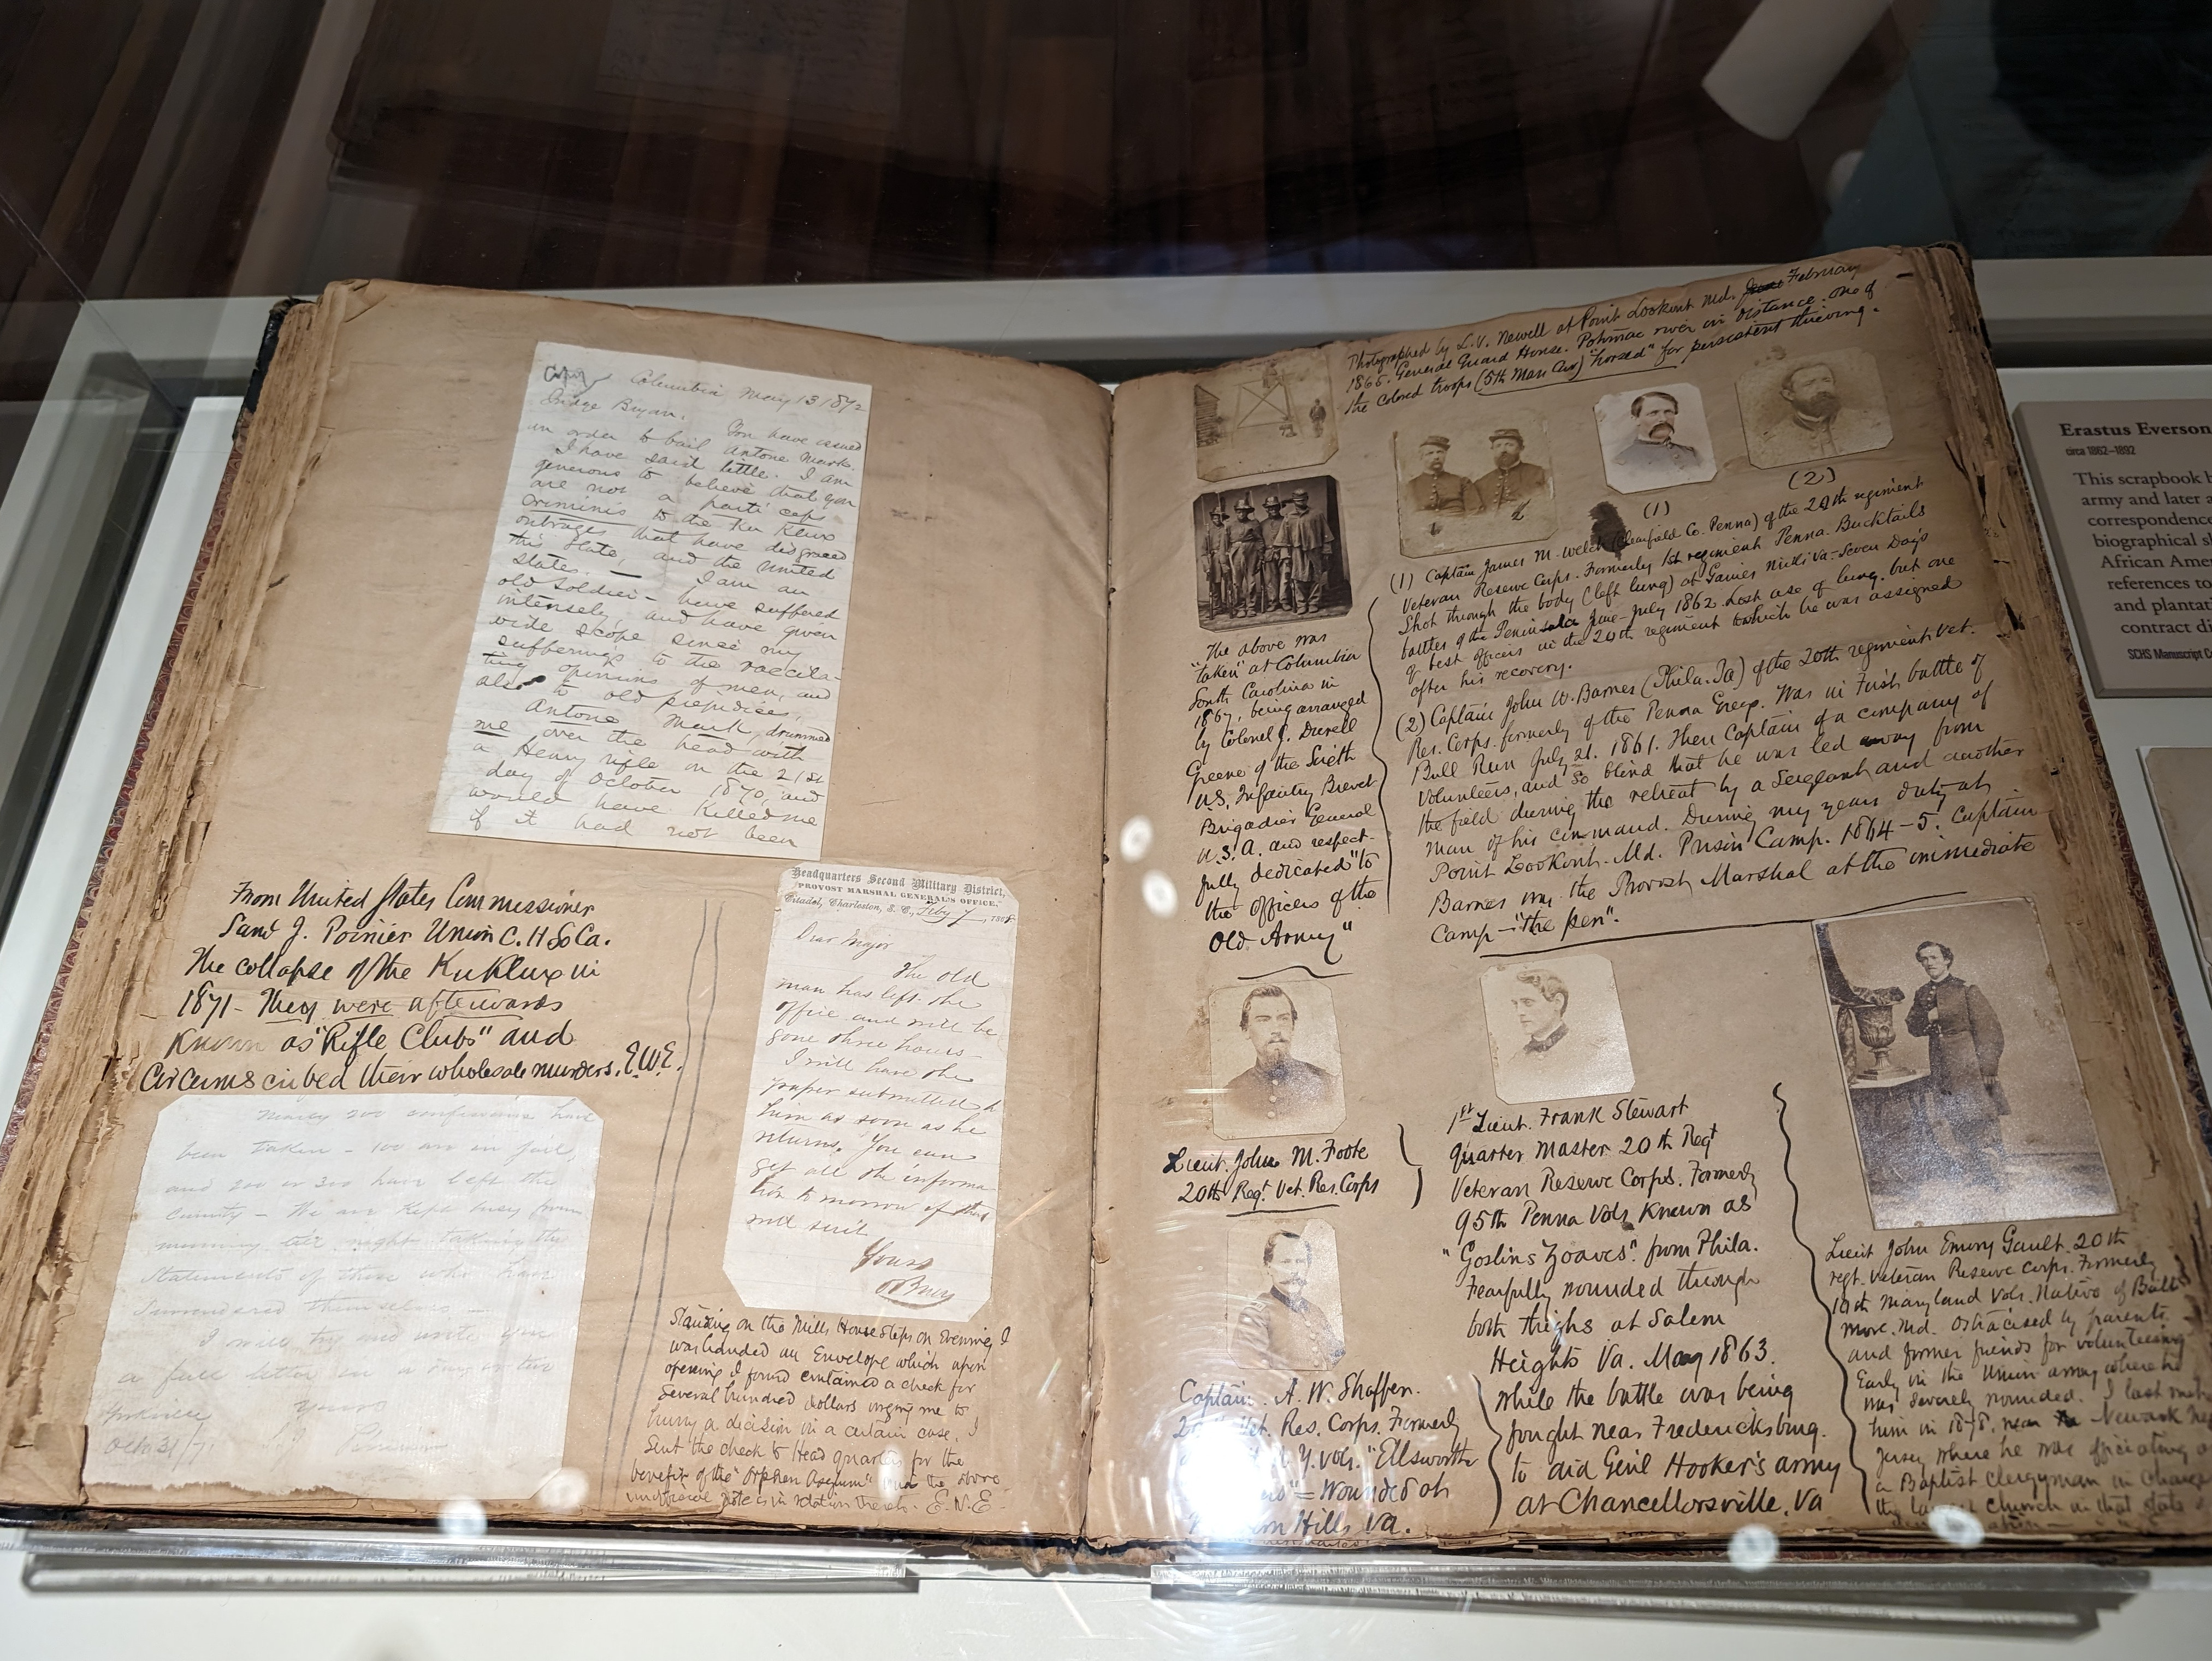 Copy Columbia May 13 1872
Judge Bryan. You have issued
an order to bail Antone Mark.
I have said little. I am
generous to believe that you
are not a parti ceps
criminis to the Ku Klux
outrages that have disgraced
this State, and the United
States. — I am an
old soldier - have suffered
intensely, and have given
wide scope since my
sufferings to the vaccila-
ting opinions of men, and
also to old prejudices.
Antone Mark drummed
me over the head with
a Henry rifle on the 21st
day of October 1870, and
would have killed me
if it had not been
From United States Commissioner
J. Poinier Union C. H So Ca.
The collapse of the Kuklux in
1871 - They were afterwards
Known as "Rifle Clubs" and
their wholesale murders. E.W.E.
Nearly 200 confessions have
been taken - 100 are in jail,
and 200 or 300 have left the
County - We are Kept busy from
morning till night taking the
Statements of those who have
Surrendered themselves -
I will try and write you
a full letter in a day or two
Yorkville Yours
Oct 31/71
Headquarters Second Military District,
PROVOST MARSHAL GENERAL'S OFFICE,
Citadel, Charleston, S. C., Feby 7, 1868
Dear Major
The old
man has left the
office and will be
gone three hours -
I will have the
paper submitted to
him as soon as he
returns. You can
get all the informa
tion tomorrow if that
will suit
Yours
Standing on the Mills House Steps on Evening I
was handed an Envelope which upon
opening I found contained a check for
several hundred dollars urging me to
hurry a decision in a certain case. I
Sent the check to Head quarters for the
benefit of the "Orphan Asylum" and the above
unofficial note is in relation
Photographed by L.V. Newell at Point Lookout Md. February
1865. General Guard House. Potomac river in distance. One of
the colored troops (5th Mass Cav) "horsed" for persistent thieving.
1 2
(1)
(2)
The above was
"taken" at Columbia
South Carolina in
1867, being arranged
by Colonel J. Durell
Greene of the Sixth
U.S. Infantry Brevet
Brigadier General
U.S.A. and respect-
fully dedicated "to
the officers of the
Old Army"
(1) Captain James M. Welch (Clearfield Co. Penna) of the 20th regiment
Veteran Reserve Corps. Formerly 1st regiment Penna. Bucktails
Shot through the body (left lung) at Gaines Mills Va - Seven Days
battles of the Peninsula June-July 1862. Lost use of lung, but one
of best officers in the 20th regiment to which he was assigned
after his recovery.
(2) Captain John W. Barnes (Phila. Pa) of the 20th regiment Vet.
Res. Corps. formerly of the Penna Greys. Was in First battle of
Bull Run July 21. 1861. Then Captain of a company of
Volunteers, and so blind that he was led away from
the field during the retreat by a Sergeant and another
man of his command. During my years duty at
Point Lookout. Md. Prison Camp. 1864-5. Captain
Barnes was the Provost Marshal at the immediate
Camp - "the pen".
Lieut. John M. Foote
20th Regt. Vet. Res. Corps
Captain. A. W. Shaffer.
Vet. Res. Corps. Formerly
Y. Vols. "Ellsworth
" = Wounded at
Hills Va.
1st Lieut. Frank Stewart
Quarter Master 20th Regt
Veteran Reserve Corps. Formerly
95th Penna Vols Known as
"Goslins Zoaves". from Phila.
Fearfully wounded through
both thighs at Salem
Heights Va. May 1863.
while the battle was being
fought near Fredericksburg.
to aid Genl Hooker's army
at Chancellorsville. Va
Lieut John Emory Gault. 20th
regt. Veteran Reserve Corps. Formerly
Maryland Vols. Native of Balti
more. Md. Ostracised by parents
and former friends for volunteering
Early in the Union army where he
was severely wounded. I last met
him in near Newark New
Jersey where he was officiating as
a Baptist Clergyman in charge
the largest church in that state
Erastus Everson
circa 1862–1892
This scrapbook b
army and later a
correspondence
biographical s
African Ame
references to
and plantat
contract di
SCHS Manuscript C